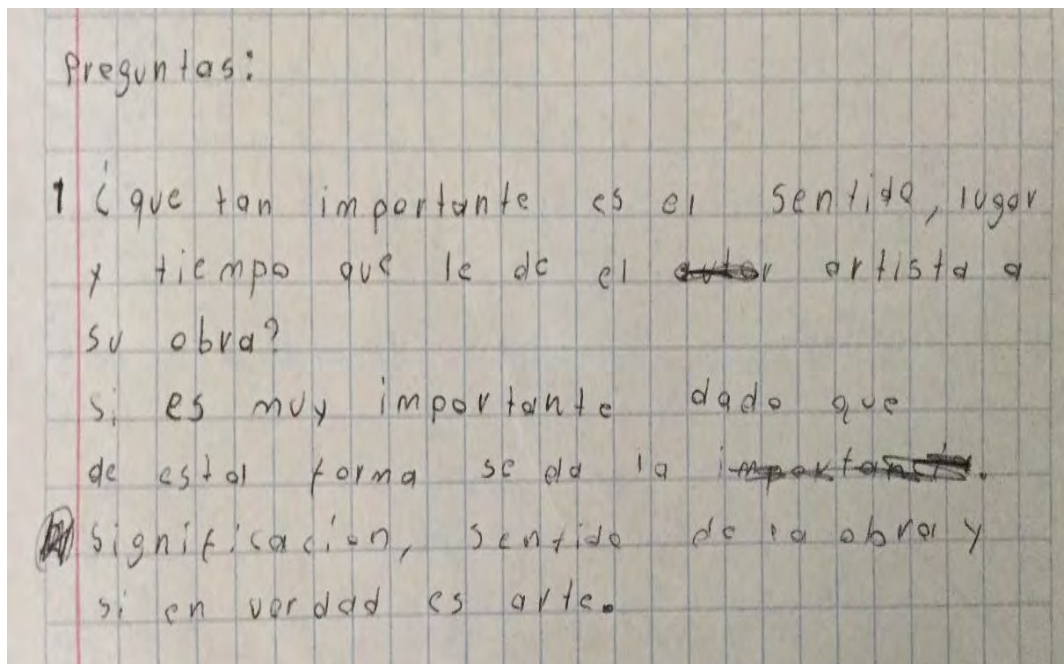 Preguntas:
1 ¿que tan importante es el sentido, lugar
y tiempo que le de el autor artista a
su obra?
si es muy importante dado que
de esta forma se da la importancia.
significación, sentido de la obra y
si en verdad es arte.